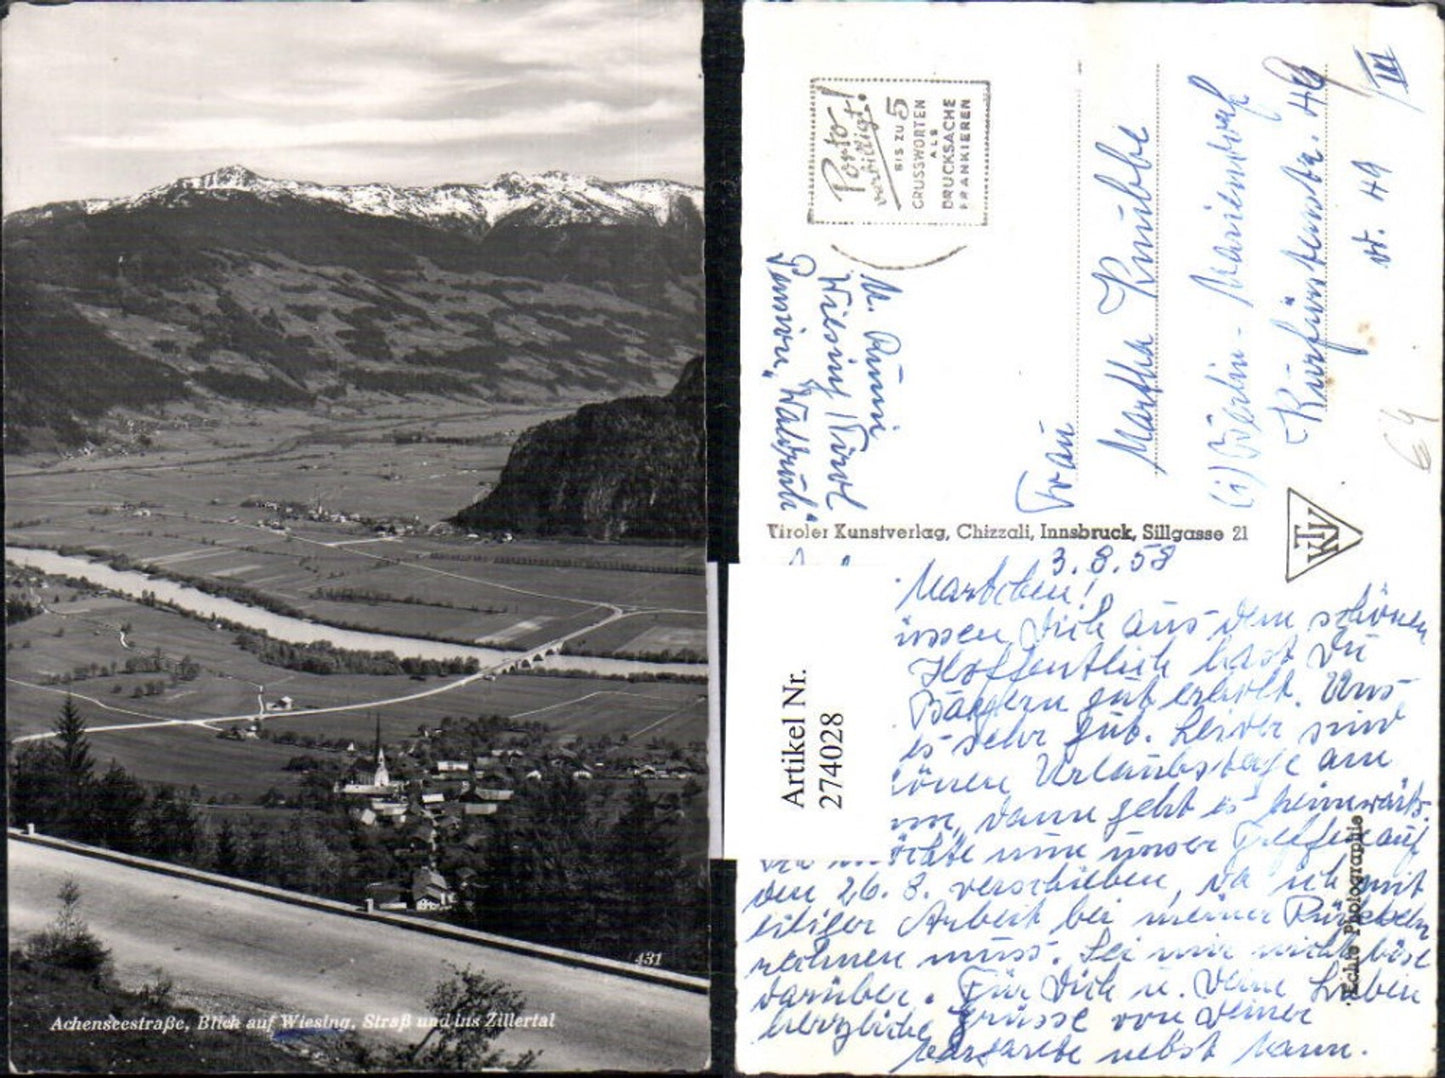 431
Achenseestraße, Blick auf Wiesing, Straß und ins Zillertal
Porto-
verbilligt!
BIS ZU 5
GRUSSWORTEN
ALS
DRUCKSACHE
FRANKIEREN
Wiesing/Tirol
Pension "Waldruh"
Frau
Martha Knubbe
(1) Berlin-Mariendorf
Kurfürstenstr. 49
v. 49
III
64
Tiroler Kunstverlag, Chizzali, Innsbruck, Sillgasse 21
TKV
Echte Photographie
Artikel Nr.
274028
3.8.58
Martchen!
üssen Dich aus dem schönen
Hoffentlich hast Du
Bädern gut erholt. Uns
es sehr gut. Leider sind
önen Urlaubstage am
dann geht es heimwärts.
möchte nun unser Treffen auf
den 26.8. verschieben, da ich mit
eiliger Arbeit bei meiner Rückkehr
rechnen muss. Sei mir nicht böse
darüber. Für Dich u. Deine Lieben
herzliche Grüsse von Deiner
Margarete nebst Mann.